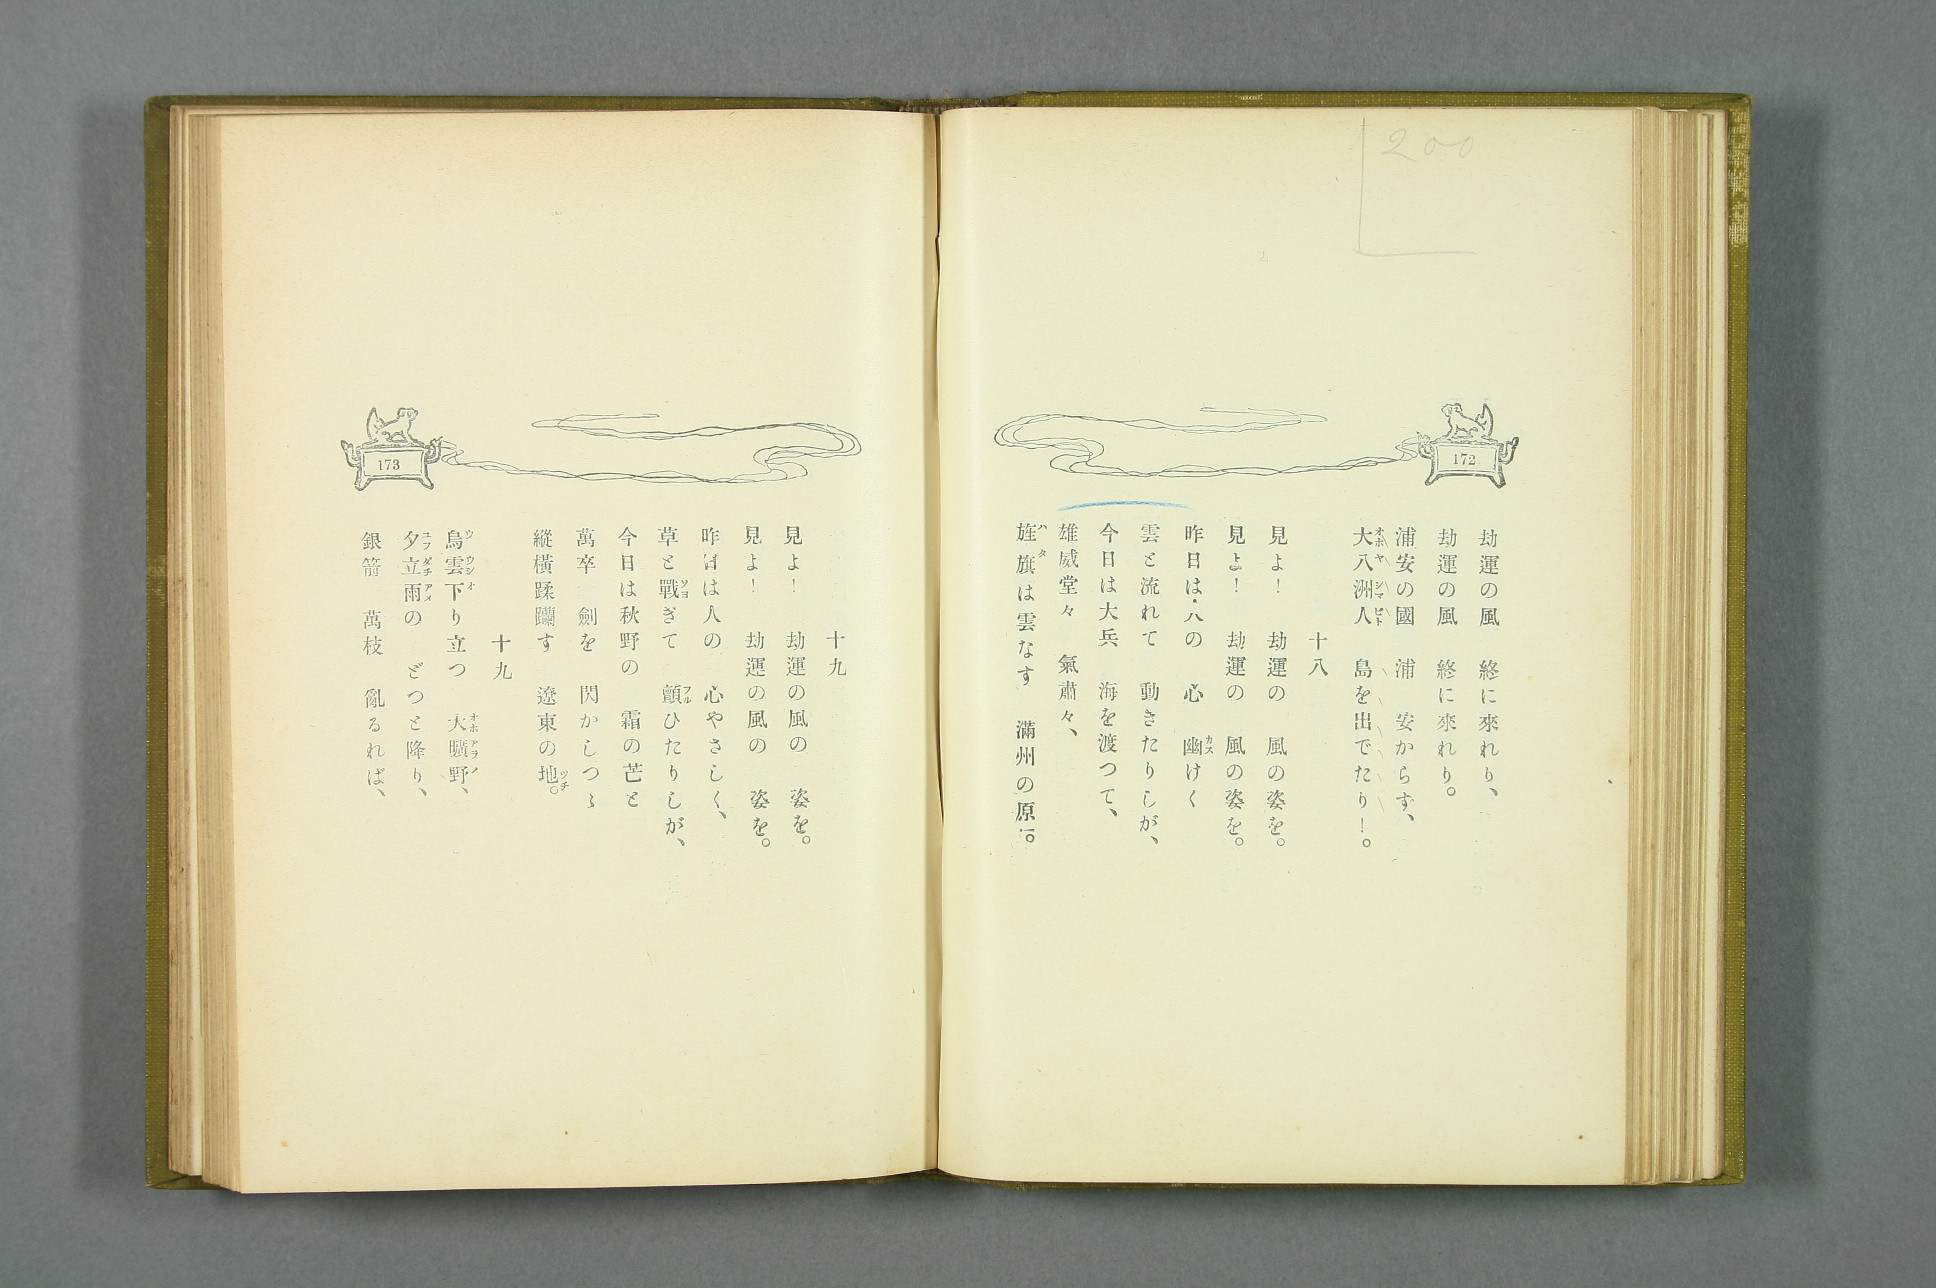 200
172
劫運の風　終に來れり、
劫運の風　終に來れり。
浦安の國　浦　安からず、
大八洲人　島を出でたり！。
オホヤシマビト
十八
見よ！　劫運の　風の姿を。
見よ！　劫運の　風の姿を。
昨日は人の　心　幽けく
カス
雲と流れて　動きたりしが、
今日は大兵　海を渡つて、
雄威堂々　氣肅々、
旌旗は雲なす　滿州の原。
ハタ
173
十九
見よ！　劫運の風の　姿を。
見よ！　劫運の風の　姿を。
昨日は人の　心やさしく、
草と戰ぎて　顫ひたりしが、
ソヨ　フル
今日は秋野の　霜の芒と
萬卒　劍を　閃かしつゝ
縱橫蹂躪す　遼東の地。
ツチ
十九
烏雲下り立つ　大曠野、
ウウンオ　オホアラノ
夕立雨の　どつと降り、
ユフダチアメ
銀箭　萬枝　亂るれば、